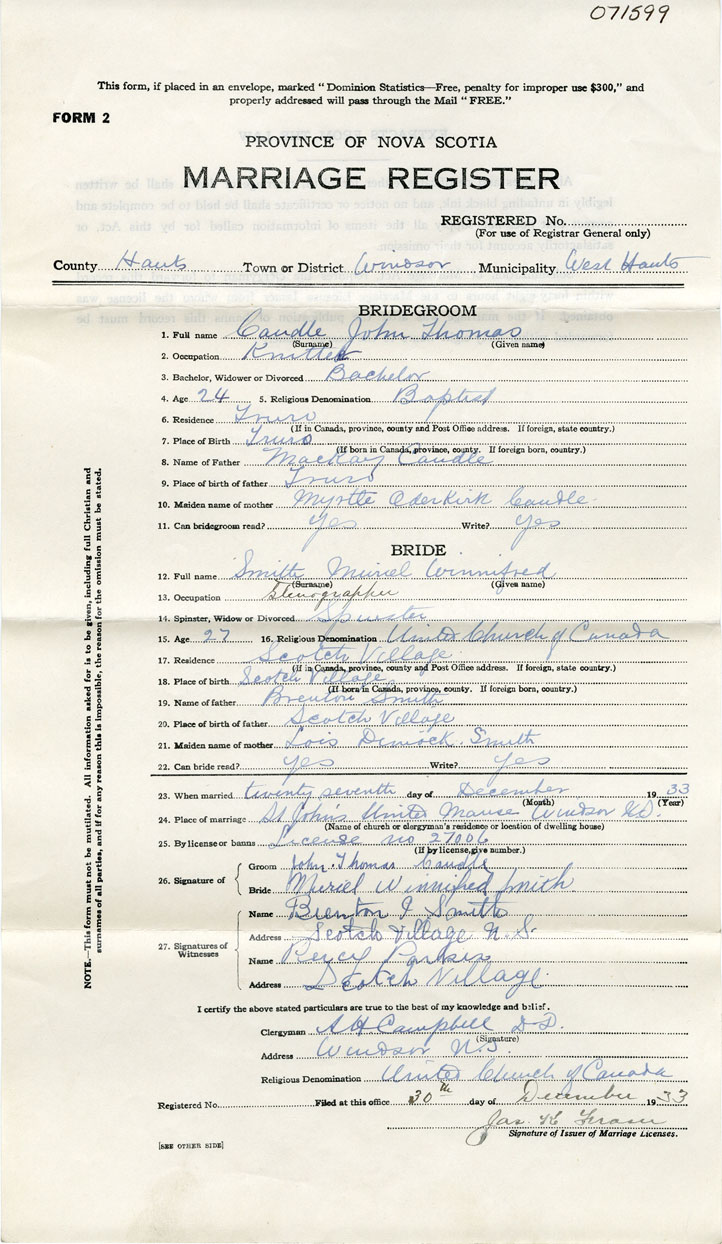 071599
This form, if placed in an envelope, marked "Dominion Statistics—Free, penalty for improper use $300," and
properly addressed will pass through the Mail "FREE."
FORM 2
PROVINCE OF NOVA SCOTIA
MARRIAGE REGISTER
REGISTERED No.
(For use of Registrar General only)
County Hants Town or District Windsor Municipality West Hants
BRIDEGROOM
1. Full name Caudle John Thomas
(Surname) (Given name)
2. Occupation Knitter
3. Bachelor, Widower or Divorced Bachelor
4. Age 24 5. Religious Denomination Baptist
6. Residence Truro
(If in Canada, province, county and Post Office address. If foreign, state country.)
7. Place of Birth Truro
(If born in Canada, province, county. If foreign born, country.)
8. Name of Father MacKay Caudle
9. Place of birth of father Truro
10. Maiden name of mother Myrtle Oderkirk Caudle
11. Can bridegroom read? Yes Write? Yes
BRIDE
12. Full name Smith Muriel Winnifred
(Surname) (Given name)
13. Occupation Stenographer
14. Spinster, Widow or Divorced Spinster
15. Age 27 16. Religious Denomination United Church of Canada
17. Residence Scotch Village
(If in Canada, province, county and Post Office address. If foreign, state country.)
18. Place of birth Scotch Village
(If born in Canada, province, county. If foreign born, country.)
19. Name of father Brenton Smith
20. Place of birth of father Scotch Village
21. Maiden name of mother Lois Dimock Smith
22. Can bride read? Yes Write? Yes
23. When married twenty seventh day of December 1933
(Month) (Year)
24. Place of marriage St John's United Manse Windsor N.S.
(Name of church or clergyman's residence or location of dwelling house)
25. By license or banns License no 27006
(If by license, give number.)
26. Signature of
Groom John Thomas Caudle
Bride Muriel Winnifred Smith
27. Signatures of Witnesses
Name Brenton I Smith
Address Scotch Village N.S.
Name Percy Parker
Address Scotch Village
I certify the above stated particulars are true to the best of my knowledge and belief.
Clergyman A H Campbell D.D.
(Signature)
Address Windsor N.S.
Religious Denomination United Church of Canada
Registered No. Filed at this office 30th day of December 1933
Jas. K Fraser
Signature of Issuer of Marriage Licenses.
[SEE OTHER SIDE]
NOTE.—This form must not be mutilated. All information asked for is to be given, including full Christian and
surnames of all parties, and if for any reason this is impossible, the reason for the omission must be stated.